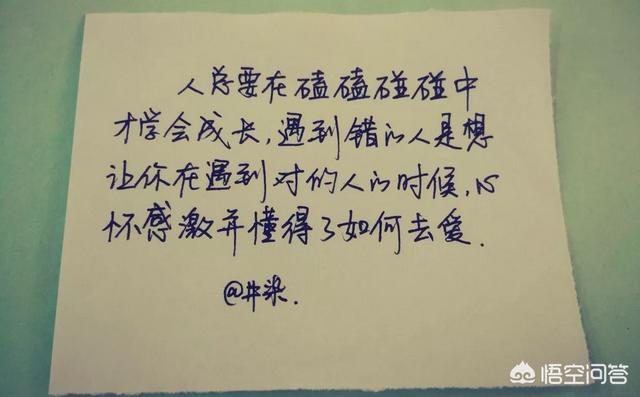 人总要在磕磕碰碰中
才学会成长,遇到错的人是想
让你在遇到对的人的时候,心
怀感激并懂得了如何去爱.
@井染.
悟空问答